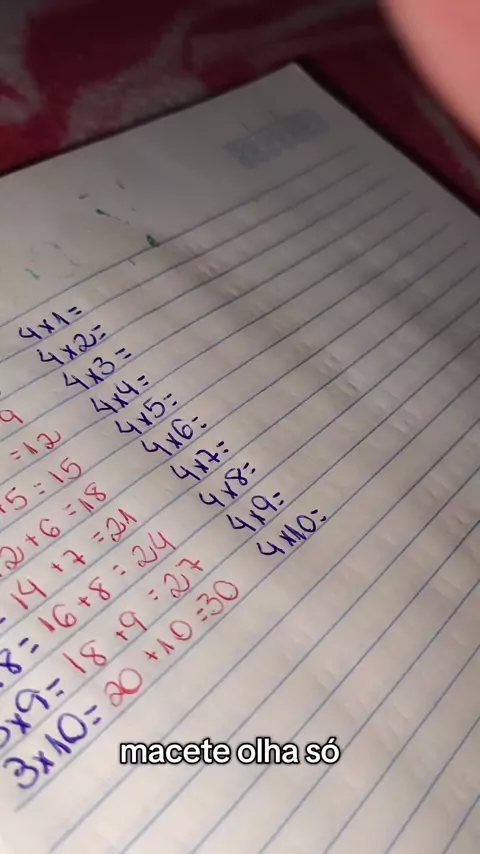 4x1=
4x2=
4x3=
4x4=
4x5=
4x6=
4x7=
4x8=
4x9=
4x10=
9
=12
+5=15
12+6=18
14+7=21
8=16+8=24
3x9=18+9=27
3x10=20+10=30
macete olha só